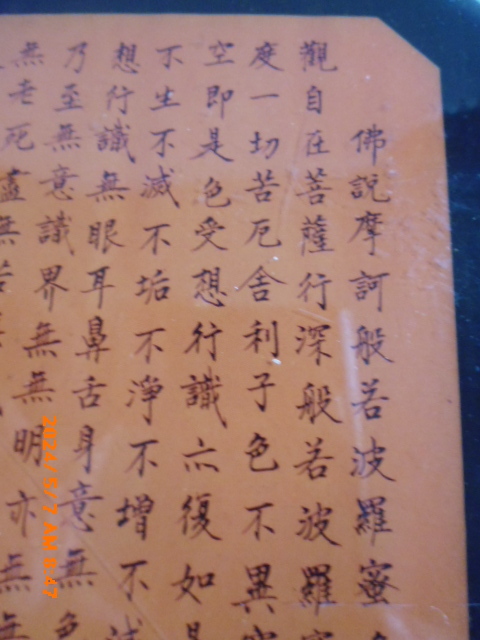 佛說摩訶般若波羅蜜
觀自在菩薩行深般若波羅
度一切苦厄舍利子色不異
空即是色受想行識亦復如是
不生不滅不垢不淨不增不
想行識無眼耳鼻舌身意無色
乃至無意識界無無明亦無
無老死盡無苦
2024/5/7 AM 8:47